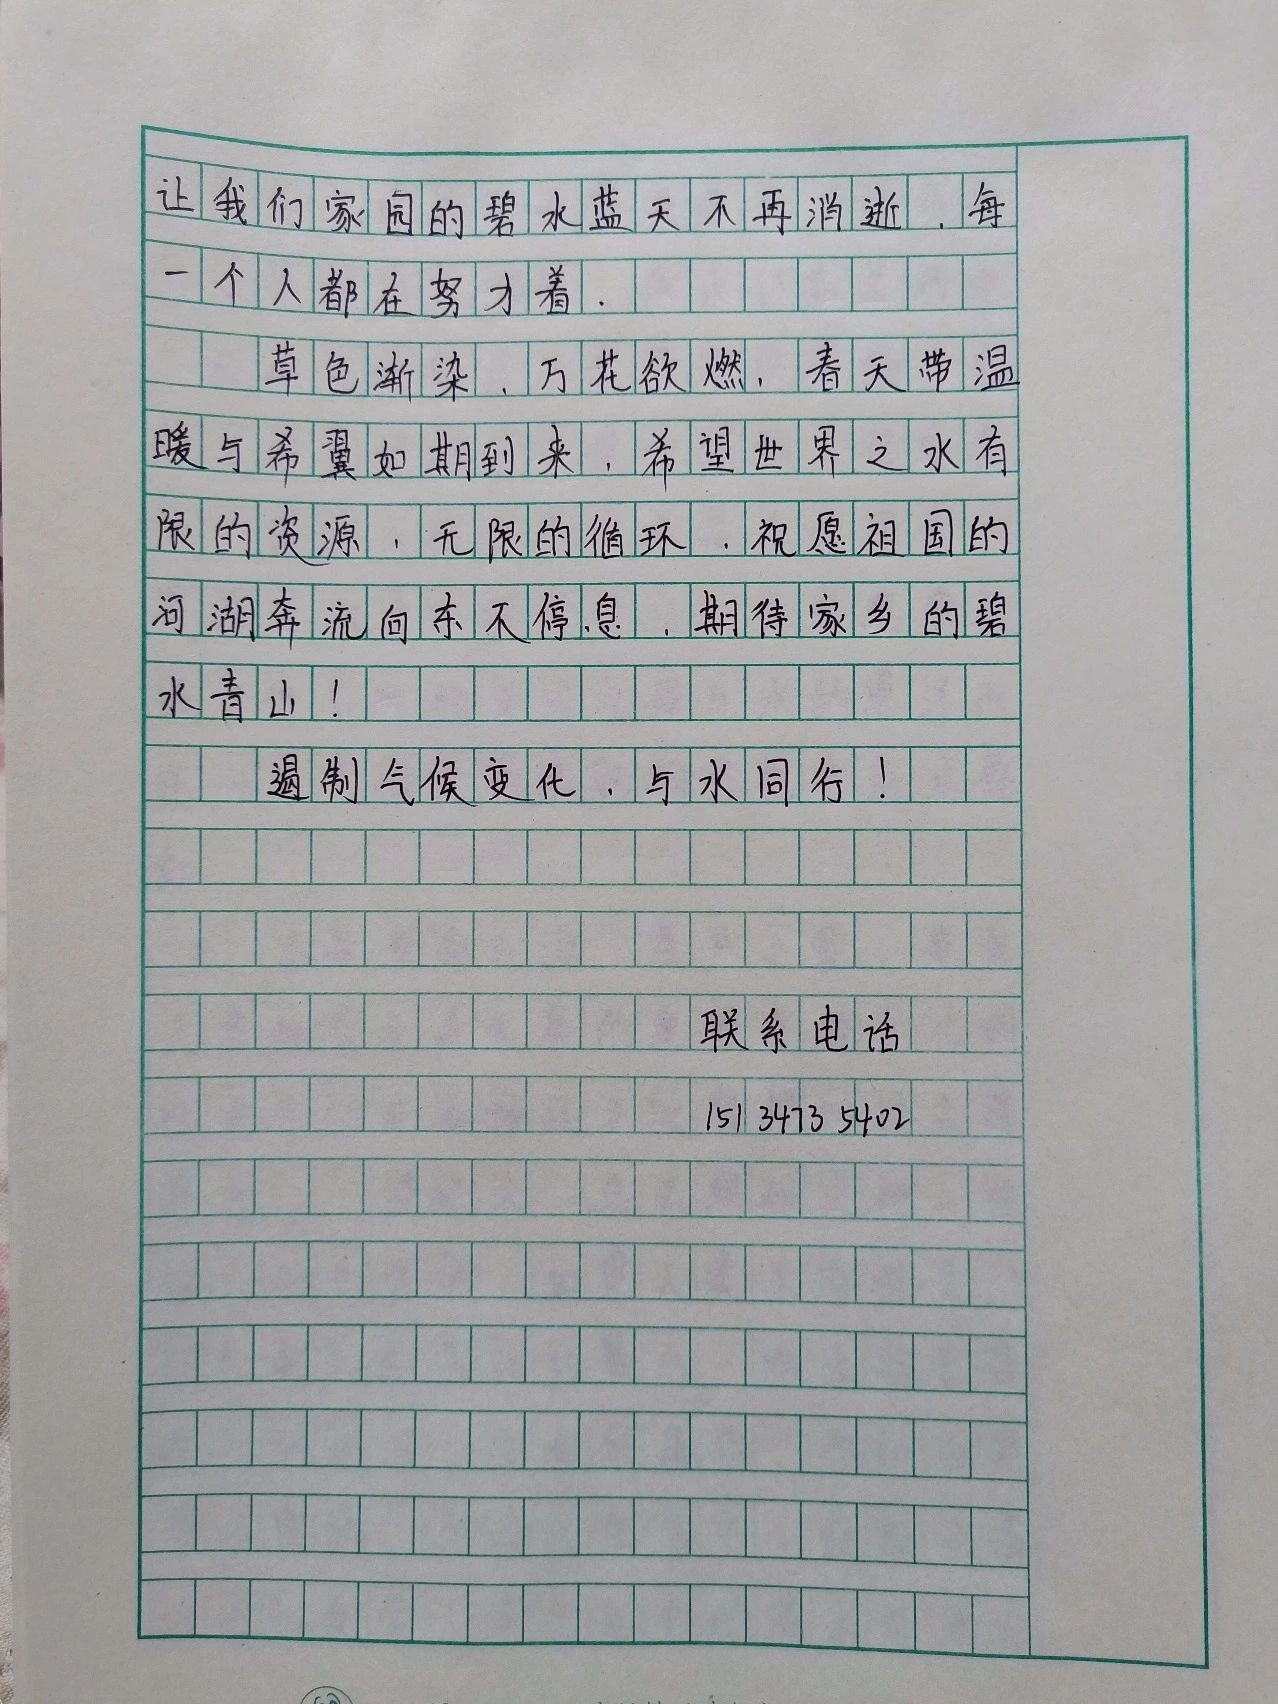 让我们家园的碧水蓝天不再消逝，每
一个人都在努才着.
草色渐染，万花欲燃，春天带温
暖与希翼如期到来，希望世界之水有
限的资源，无限的循环，祝愿祖国的
河湖奔流向东不停息，期待家乡的碧
水青山！
遏制气候变化，与水同行！
联系电话
151 3473 5402